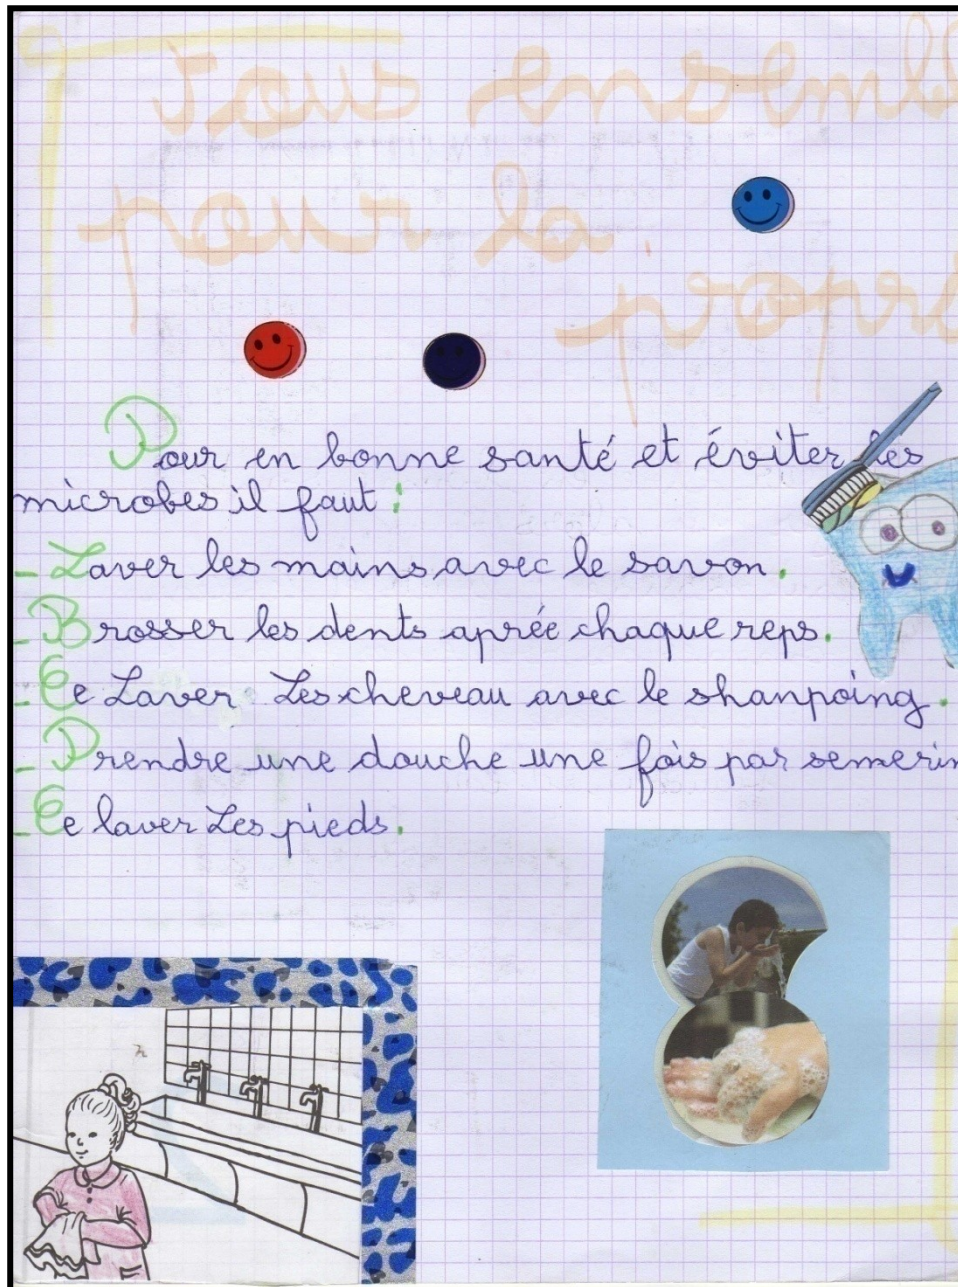 Tous ensembl
pour la
propr
Pour en bonne santé et éviter les
microbes il faut :
- Laver les mains avec le savon.
- Brosser les dents aprée chaque reps.
- Ce Laver Les cheveau avec le shanpoing.
- Prendre une douche une fois par semerin
- Ce laver Les pieds.